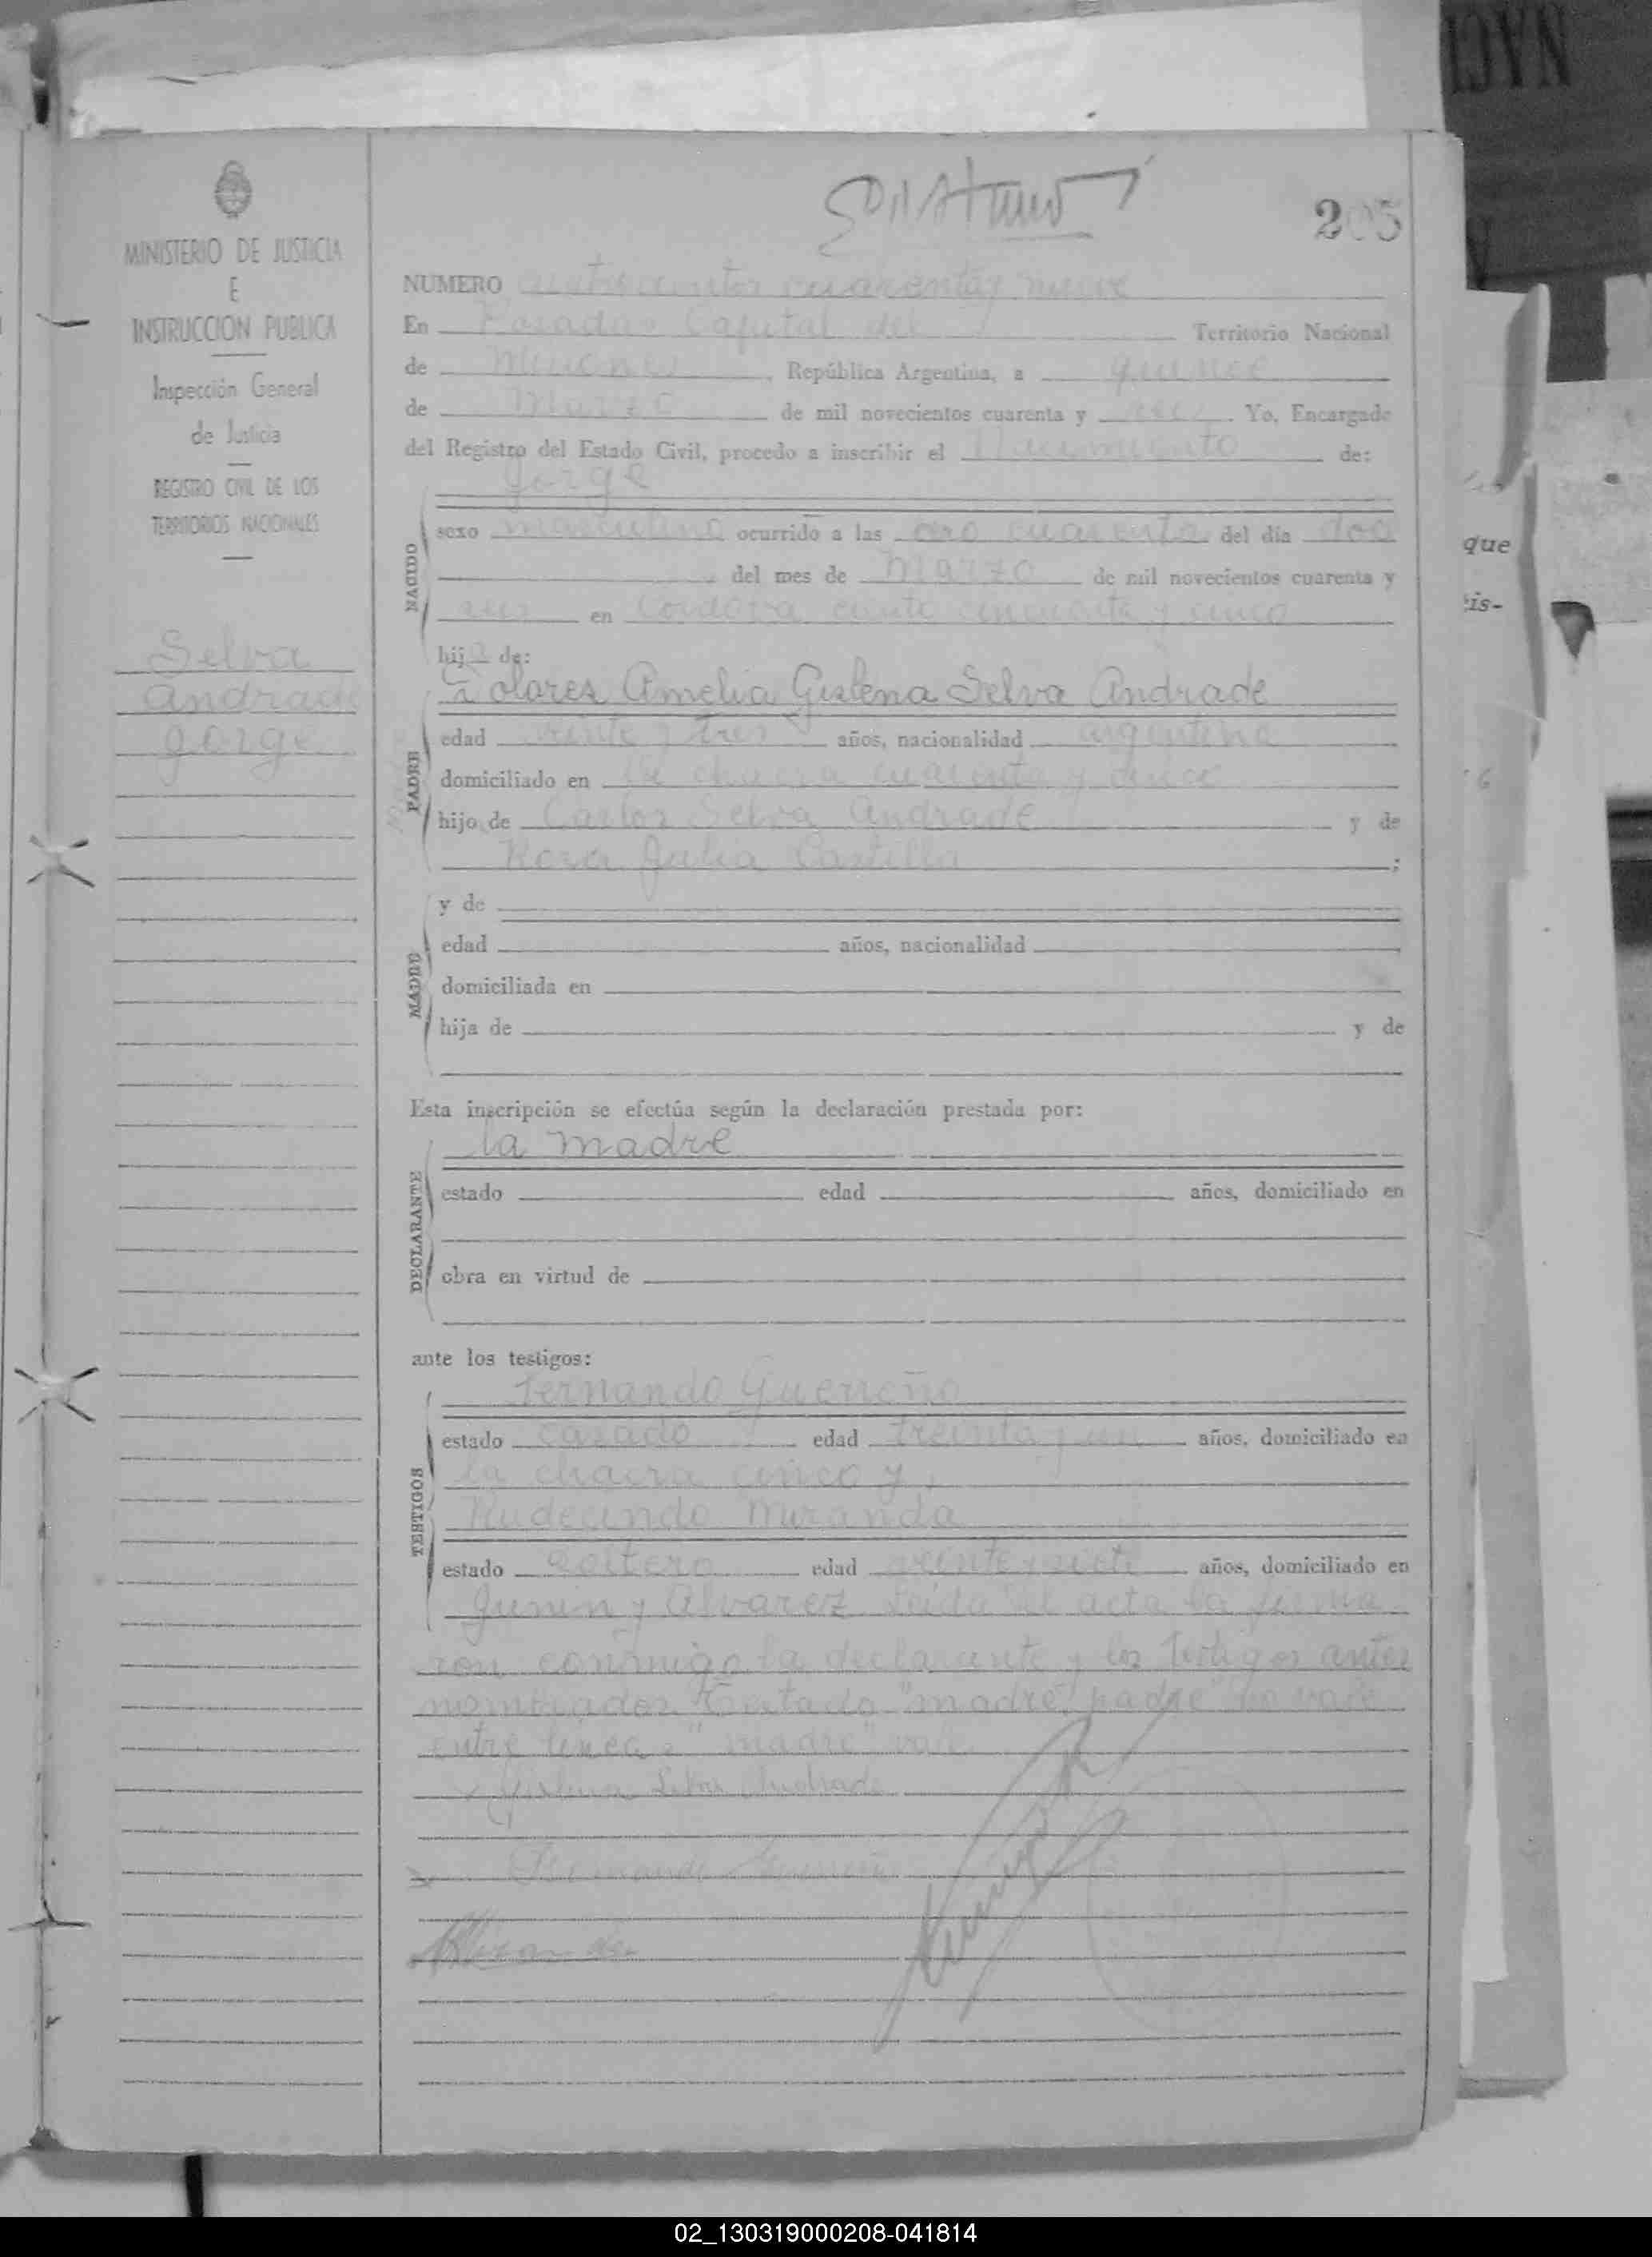 MINISTERIO DE JUSTICIA
E
INSTRUCCION PUBLICA
Inspección General
de Justicia
REGISTRO CIVIL DE LOS
TERRITORIOS NACIONALES
Selva
Andrade
Jorge
205
NUMERO cuatrocientos cuarenta y nueve
En Posadas Capital del Territorio Nacional
de Misiones, República Argentina, a quince
de Marzo de mil novecientos cuarenta y seis. Yo, Encargado
del Registro del Estado Civil, procedo a inscribir el Nacimiento de:
Jorge
NACIDO
sexo masculino ocurrido a las cero cuarenta del día dos
del mes de Marzo de mil novecientos cuarenta y
seis en Cordoba ciento cincuenta y cinco
hijo de:
Dolores Amelia Gislena Selva Andrade
PADRE
edad veinte y tres años, nacionalidad argentina
domiciliado en la chacra cuarenta y cinco
hijo de Carlos Selva Andrade y de
Rosa Julia Castilla;
y de
MADRE
edad años, nacionalidad
domiciliada en
hija de y de
Esta inscripción se efectúa según la declaración prestada por:
la madre
DECLARANTE
estado edad años, domiciliado en
obra en virtud de
ante los testigos:
Fernando Guerreño
TESTIGOS
estado casado edad treinta y un años, domiciliado en
la chacra cinco y,
Rudecindo Miranda
estado soltero edad veinte y siete años, domiciliado en
Junin y Alvarez Leida el acta la firma-
ron conmigo la declarante y los testigos antes
nombrados. Testado "madre, padre" no vale
entre linea: "madre" vale.
Gislena Selva Andrade
Fernando Guerreño
que
is-
02_130319000208-041814